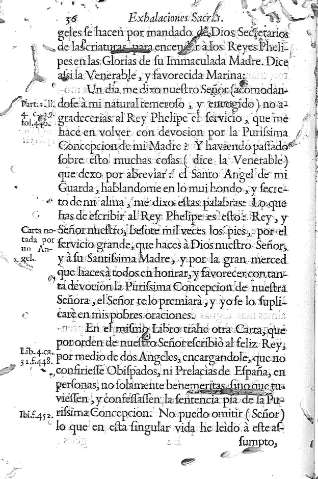 36 Exhalaciones Sacras.
geles se hacen por mandado de Dios Secretarios
de las criaturas, para encender à los Reyes Pheli-
pes en las Glorias de su Immaculada Madre. Dice
assi la Venerable, y favorecida Marina:
Un dia me dixo nuestro Señor (acomodan-
dose à mi natural temeroso, y encogido) no a-
gradecerias al Rey Phelipe el servicio, que me
hace en volver con devocion por la Purissima
Concepcion de mi Madre? Y haviendo passado
sobre esto muchas cosas (dice la Venerable)
que dexo por abreviar: el Santo Angel de mi
Guarda, hablandome en lo mui hondo, y secre-
to de mi alma, me dixo estas palabras: Lo que
has de escribir al Rey Phelipe es esto: Rey, y
Señor nuestro, beso te mil veces los pies, por el
servicio grande, que haces à Dios nuestro Señor,
y à su Santissima Madre, y por la gran merced
que haces à todos en honrar, y favorecer con tan-
ta devocion la Purissima Concepcion de nuestra
Señora, el Señor te lo premiarà, y yo se lo supli-
carè en mis pobres oraciones.
En el mismo Libro trahe otra Carta, que
por orden de nuestro Señor escribiò al feliz Rey,
por medio de dos Angeles, encargandole, que no
confiriesse Obispados, ni Prelacias de España, en
personas, no solamente benemeritas, sino que tu-
viessen, y confessassen la sentencia pia de la Pu-
rissima Concepcion. No puedo omitir (Señor)
lo que en esta singular vida he leido à este as-
sumpto,
Part. 1. li.
4. c. 29.
fol. 442.
Carta no-
tada por
un An-
gel.
Lib. 4. ca.
32. f. 448.
Ibi. f. 452.